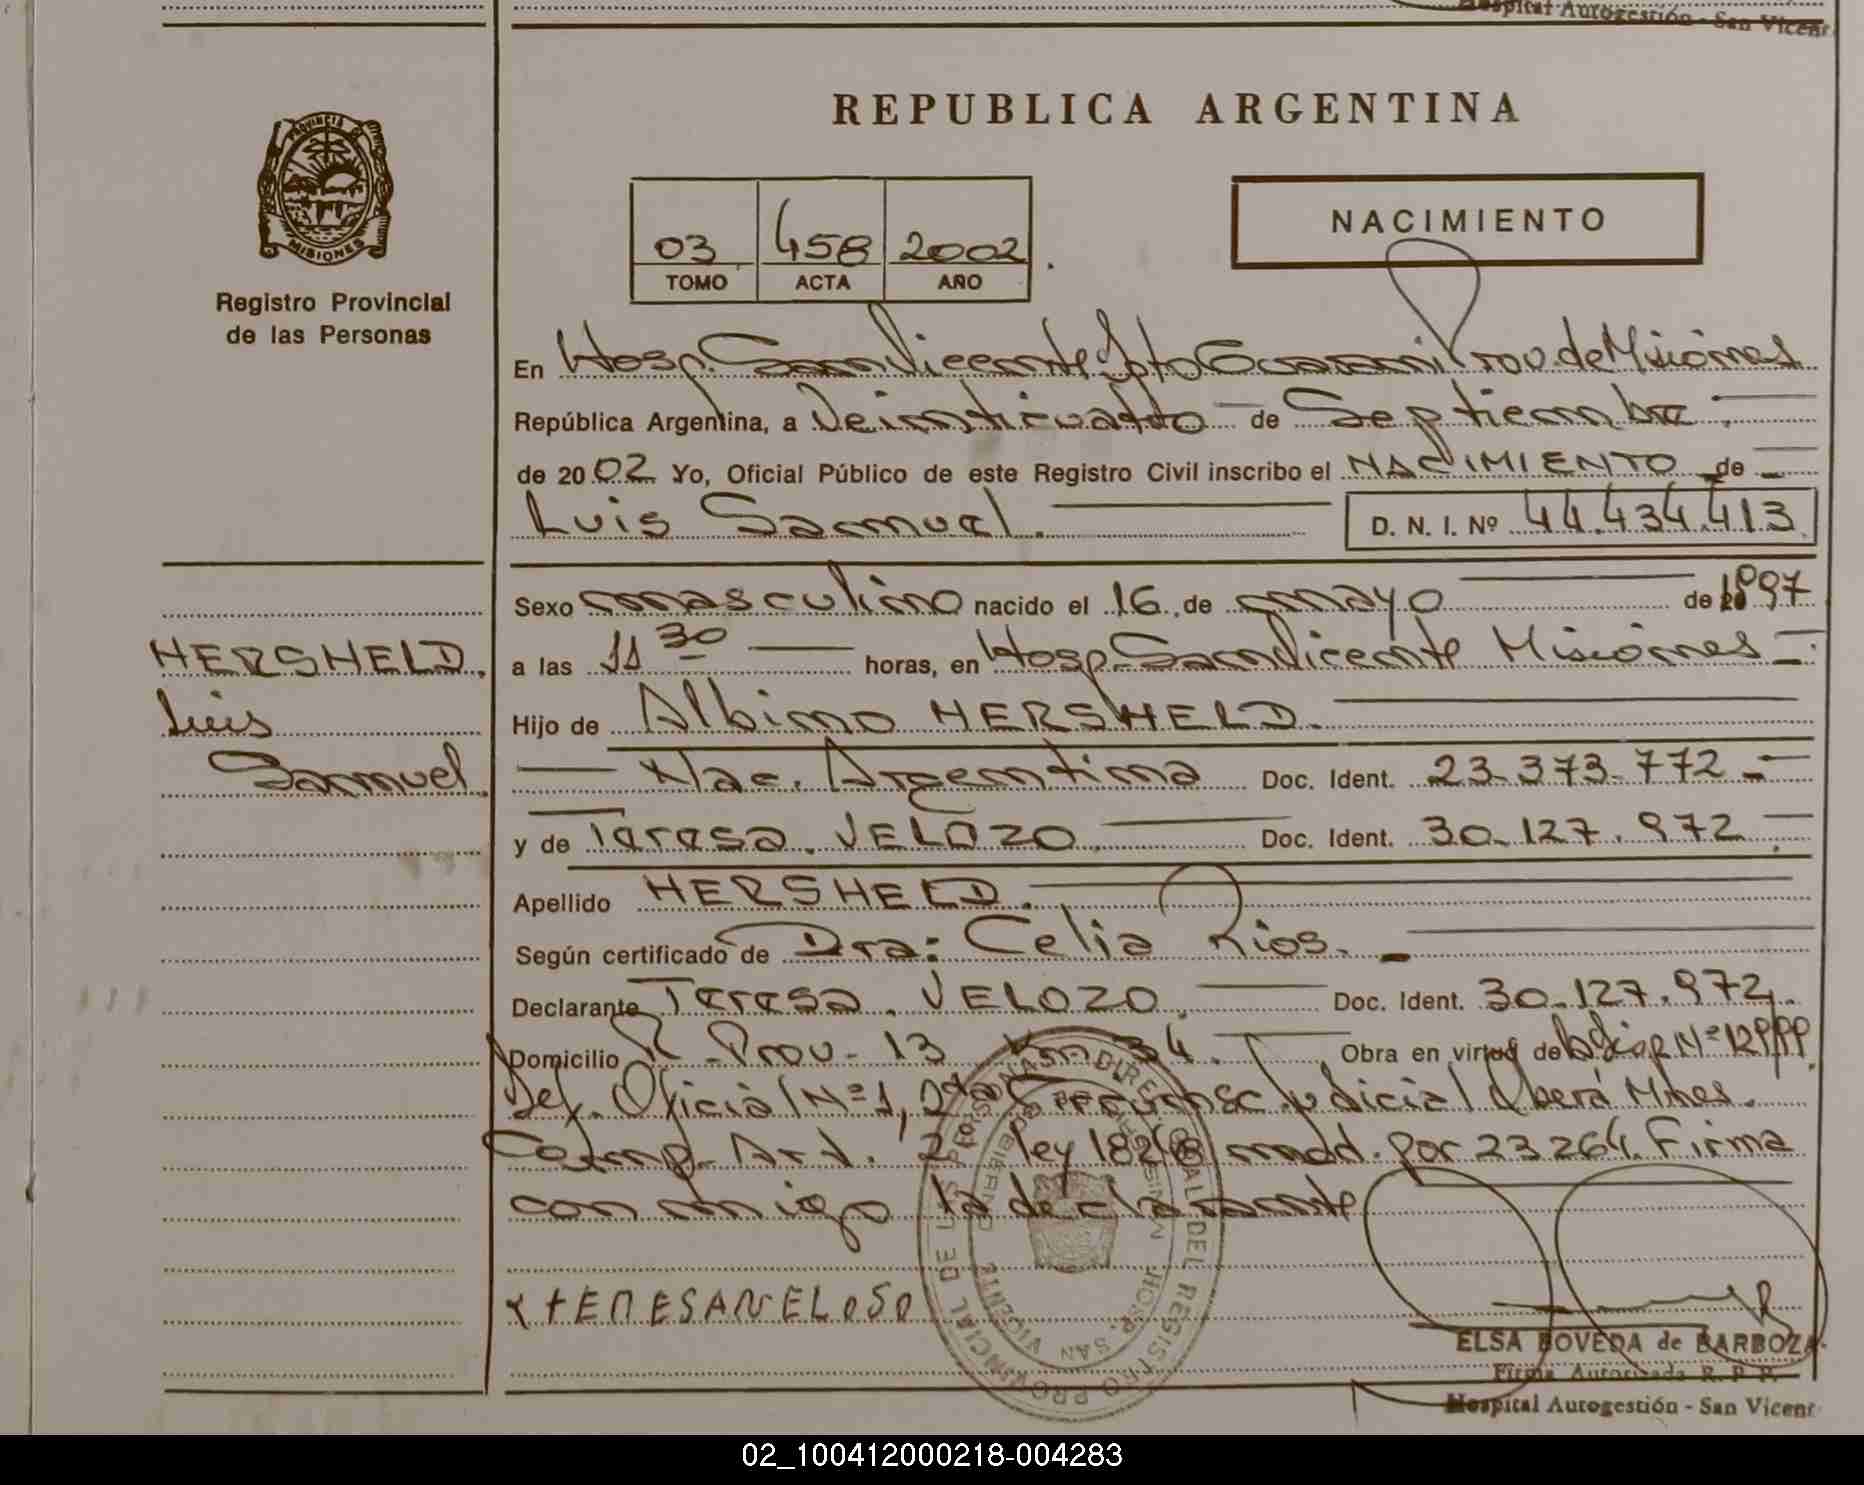 Hospital Autogestión - San Vicent
REPUBLICA ARGENTINA
PROVINCIA DE
MISIONES
Registro Provincial
de las Personas
03 458 2002
TOMO ACTA AÑO
NACIMIENTO
En Hosp. San Vicente Dpto Guarani Prov. de Misiones
República Argentina, a Veinticuatro de Septiembre
de 2002 Yo, Oficial Público de este Registro Civil inscribo el NACIMIENTO de
Luis Samuel. D. N. I. Nº 44.434.413
Sexo masculino nacido el 16 de mayo de 1997
HERSHELD,
Luis
Samuel.
a las 11 30 horas, en Hosp. San Vicente Misiones
Hijo de Albino HERSHELD.
Nac. Argentina Doc. Ident. 23.373.772
y de Teresa. VELOZO. Doc. Ident. 30.127.972
Apellido HERSHELD.
Según certificado de Dra: Celia Rios.
Declarante Teresa. VELOZO. Doc. Ident. 30.127.972
Domicilio R. Prov. 13 Km 34. Obra en virtud de Nº
Def. Oficial Nº 1, 2da Circunsc. Judicial Oberá Mnes.
Art. 2 ley 18248 mod. por 23264. Firma
conmigo la declarante
TERESA VELOSO
DIRECCION GENERAL DEL REGISTRO PROVINCIAL DE LAS PERSONAS
HOSP. SAN VICENTE
ELSA BOVEDA de BARBOZA
Firma Autorizada R. P. P.
Hospital Autogestión - San Vicent
02_100412000218-004283